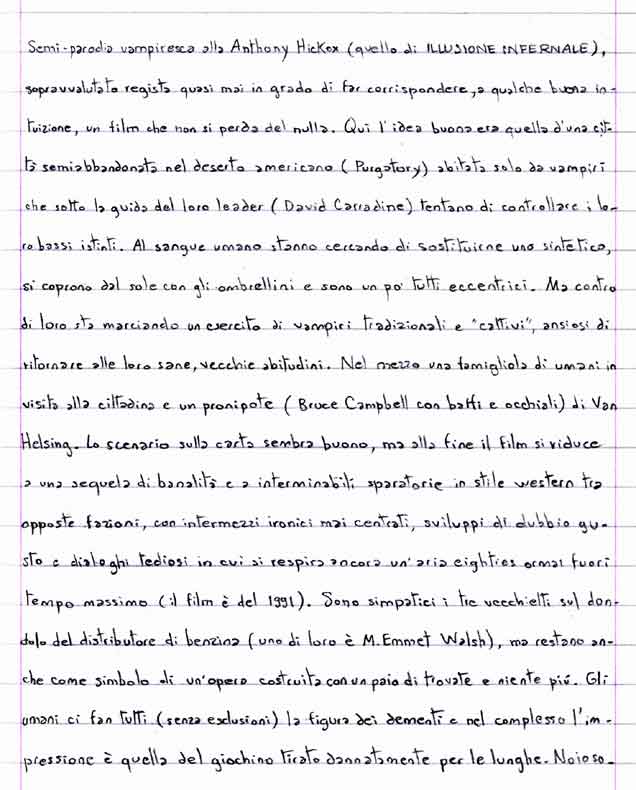 Semi-parodia vampiresca alla Anthony Hickox (quello di ILLUSIONE INFERNALE),
sopravvalutato regista quasi mai in grado di far corrispondere, a qualche buona in-
tuizione, un film che non si perda del nulla. Qui l'idea buona era quella d'una cit-
tà semiabbandonata nel deserto americano (Purgatory) abitata solo da vampiri
che sotto la guida del loro leader (David Carradine) tentano di controllare i lo-
ro bassi istinti. Al sangue umano stanno cercando di sostituirne uno sintetico,
si coprono dal sole con gli ombrellini e sono un po' tutti eccentrici. Ma contro
di loro sta marciando un esercito di vampiri tradizionali e "cattivi", ansiosi di
ritornare alle loro sane, vecchie abitudini. Nel mezzo una famigliola di umani in
visita alla cittadina e un pronipote (Bruce Campbell con baffi e occhiali) di Van
Helsing. Lo scenario sulla carta sembra buono, ma alla fine il film si riduce
a una sequela di banalità e a interminabili sparatorie in stile western tra
opposte fazioni, con intermezzi ironici mai centrati, sviluppi di dubbio gu-
sto e dialoghi tediosi in cui si respira ancora un'aria eighties ormai fuori
tempo massimo (il film è del 1991). Sono simpatici i tre vecchietti sul don-
dolo del distributore di benzina (uno di loro è M. Emmet Walsh), ma restano an-
che come simbolo di un'opera costruita con un paio di trovate e niente più. Gli
umani ci fan tutti (senza esclusioni) la figura dei dementi e nel complesso l'im-
pressione è quella del giochino tirato dannatamente per le lunghe. Noioso.